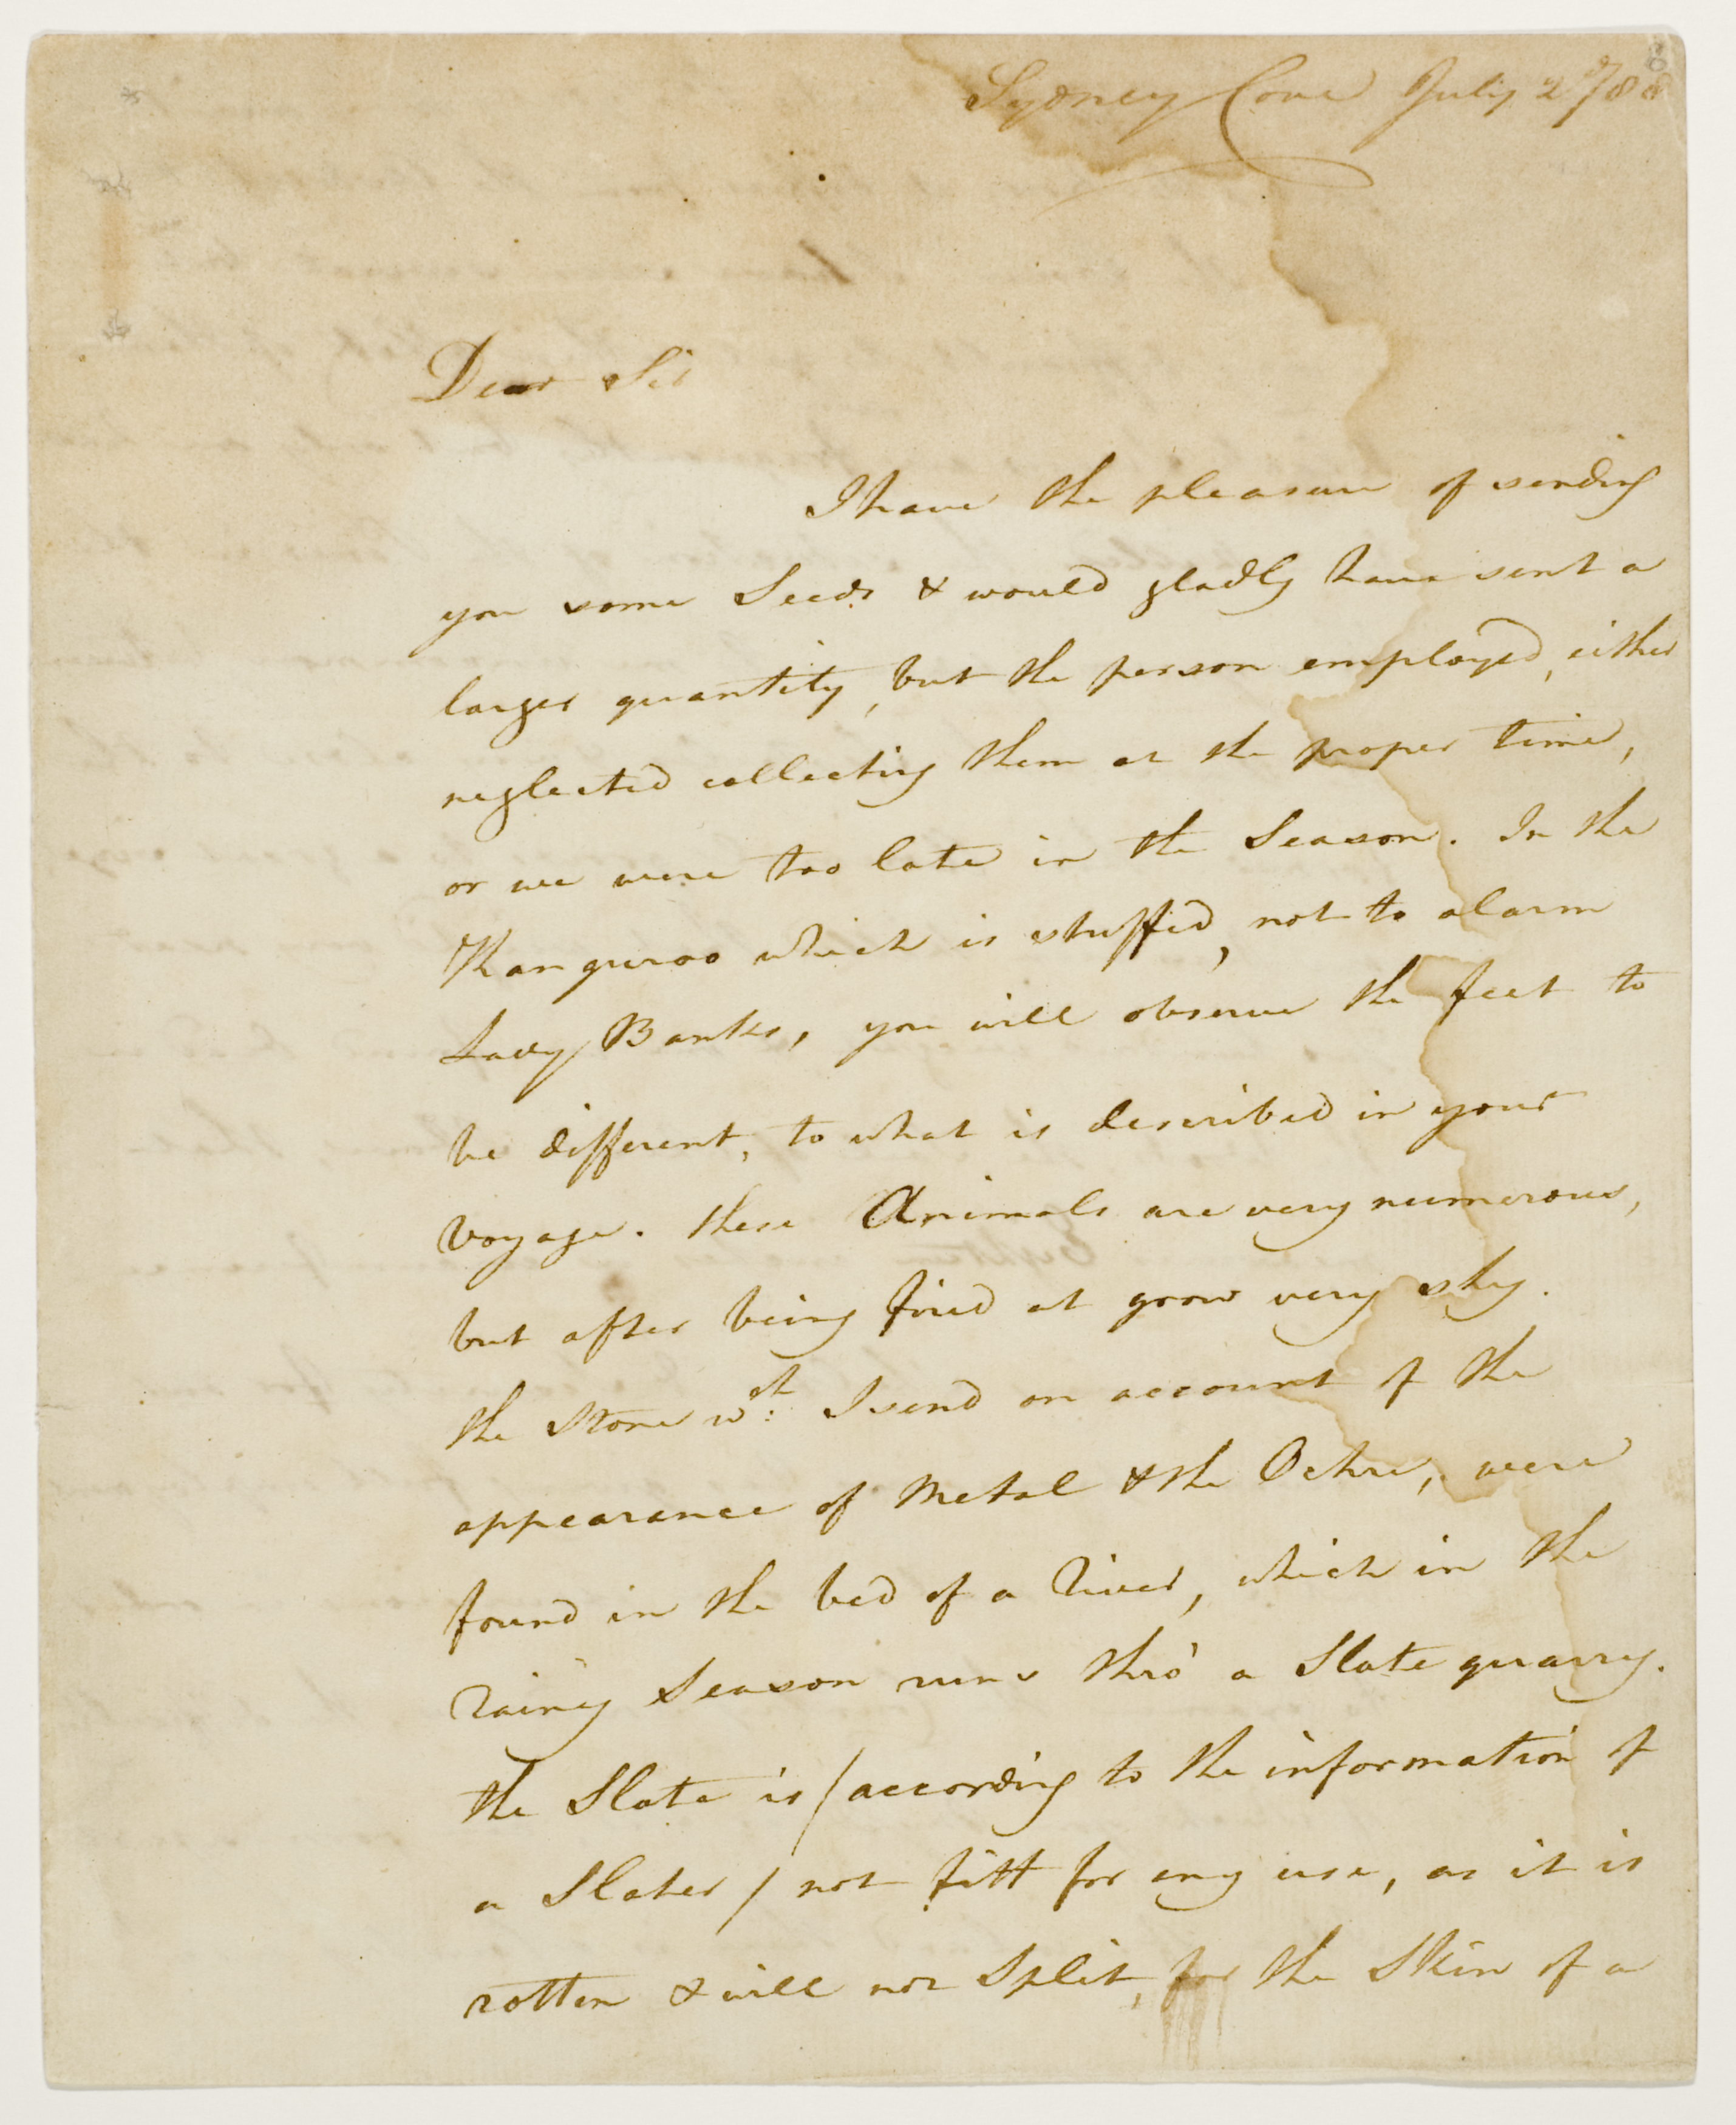 Sydney Cove July 2 788
Dear Sir
I have the pleasure of sending
you some Seeds & would gladly have sent a
larger quantity, but the person employed, either
neglected collecting them at the proper time,
or we were too late in the Season. In the
Kanguroo which is stuffed, not to alarm
Lady Banks, you will observe the feet to
be different, to what is described in your
Voyage. these Animals are very numerous,
but after being fired at grow very shy.
the Stone wch: I send on account of the
appearance of Metal & the Ochre, were
found in the bed of a River, which in the
rainy Season runs thro' a Slate quarry.
the Slate is / according to the information of
a Slater / not fitt for any use, as it is
rotten & will not Split, for the Skin of a